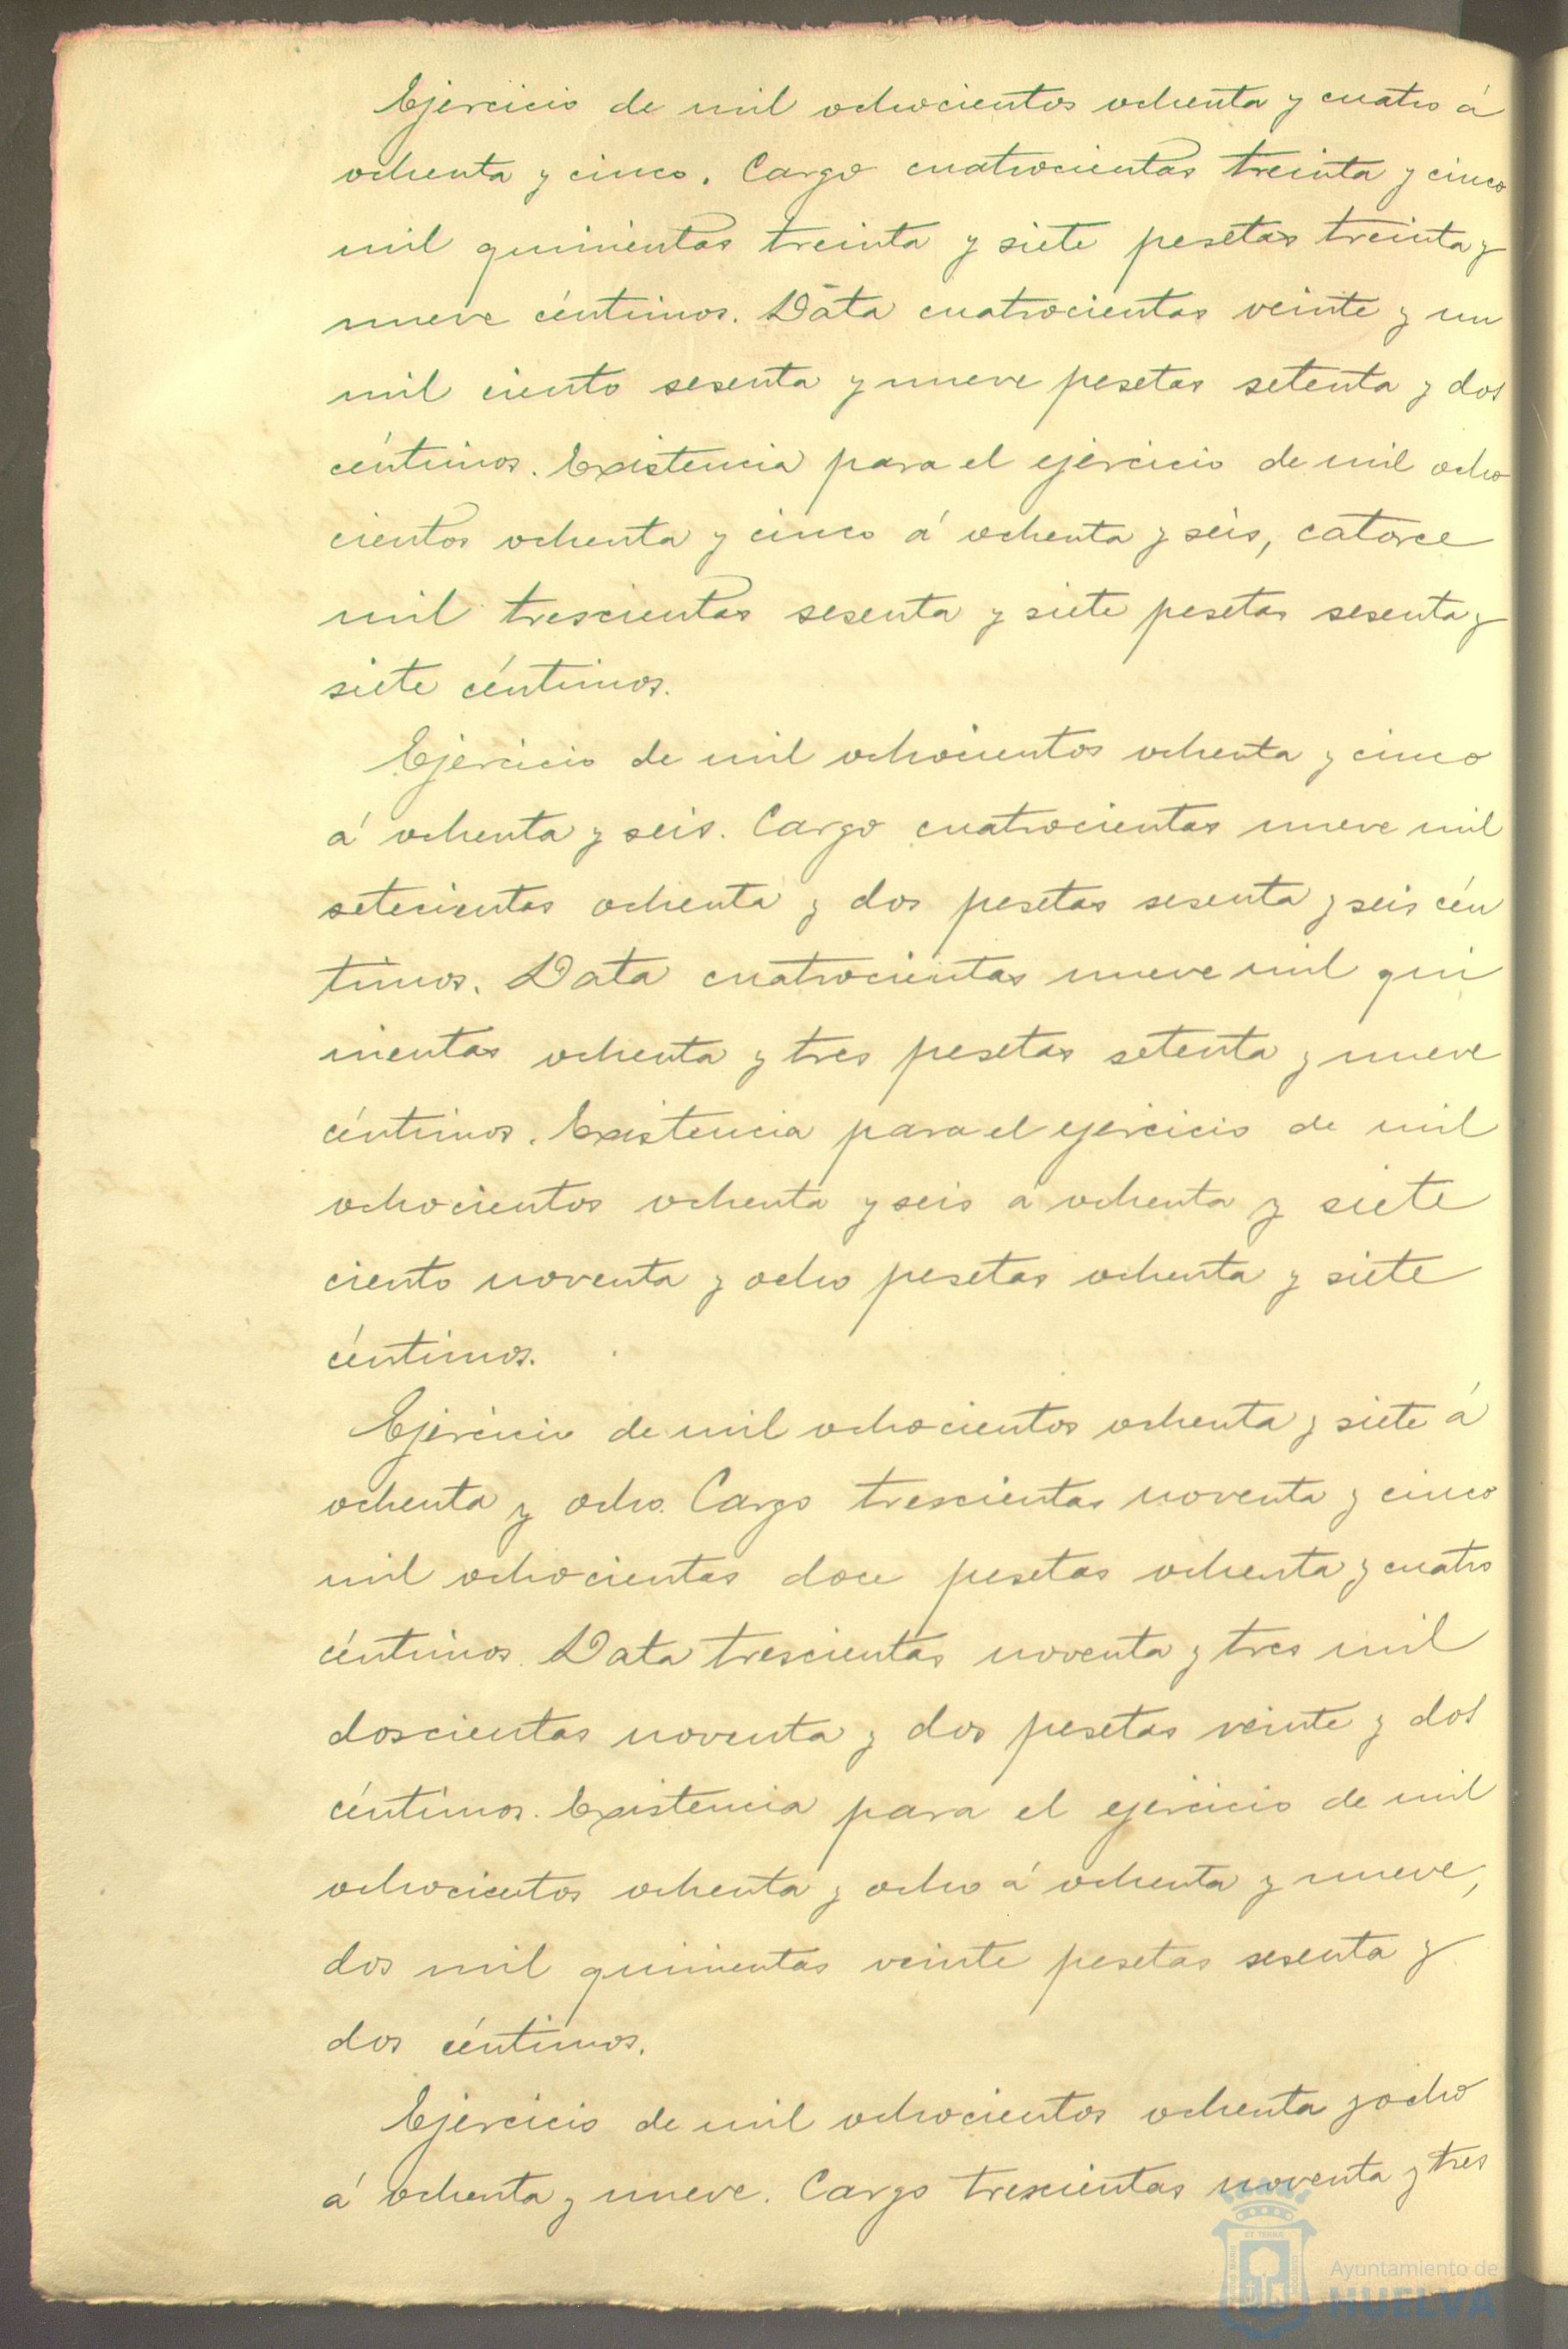 Ejercicio de mil ochocientos ochenta y cuatro á
ochenta y cinco. Cargo cuatrocientas treinta y cinco
mil quinientas treinta y siete pesetas treinta y
nueve céntimos. Data cuatrocientas veinte y un
mil ciento sesenta y nueve pesetas setenta y dos
céntimos. Existencia para el ejercicio de mil ocho
cientos ochenta y cinco á ochenta y seis, catorce
mil trescientas sesenta y siete pesetas sesenta y
siete céntimos.
Ejercicio de mil ochocientos ochenta y cinco
á ochenta y seis. Cargo cuatrocientas nueve mil
setecientas ochenta y dos pesetas sesenta y seis cén
timos. Data cuatrocientas nueve mil qui
nientas ochenta y tres pesetas setenta y nueve
céntimos. Existencia para el ejercicio de mil
ochocientos ochenta y seis á ochenta y siete
ciento noventa y ocho pesetas ochenta y siete
céntimos.
Ejercicio de mil ochocientos ochenta y siete á
ochenta y ocho. Cargo trescientas noventa y cinco
mil ochocientas doce pesetas ochenta y cuatro
céntimos. Data trescientas noventa y tres mil
doscientas noventa y dos pesetas veinte y dos
céntimos. Existencia para el ejercicio de mil
ochocientos ochenta y ocho á ochenta y nueve,
dos mil quinientas veinte pesetas sesenta y
dos céntimos.
Ejercicio de mil ochocientos ochenta y ocho
á ochenta y nueve. Cargo trescientas noventa y tres
Ayuntamiento de
HUELVA